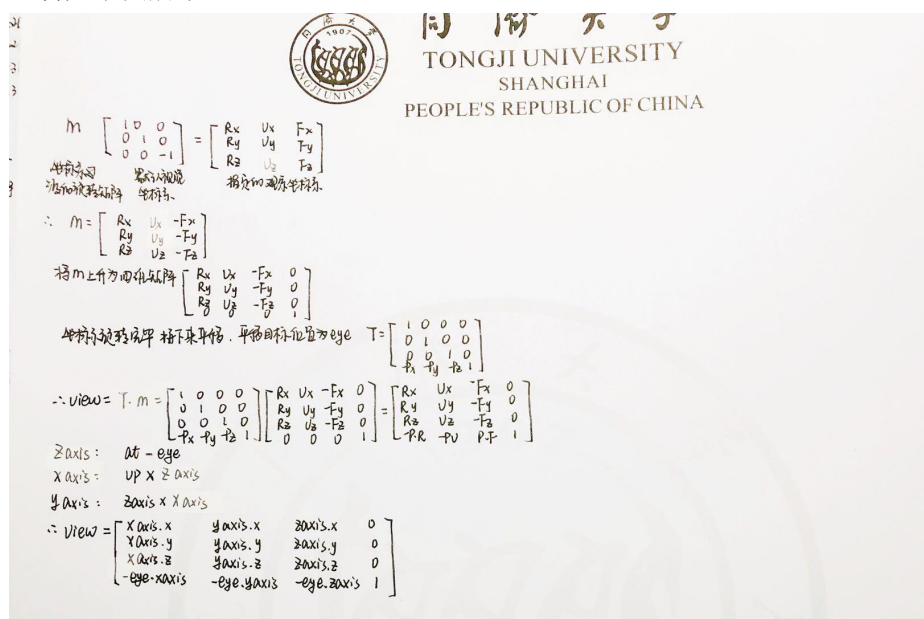 同济大学
1907
TONGJI UNIVERSITY
TONGJI UNIVERSITY
SHANGHAI
PEOPLE'S REPUBLIC OF CHINA
m [1 0 0; 0 1 0; 0 0 -1] = [Rx Ux Fx; Ry Uy Fy; Rz Uz Fz]
坐标系间 默认观察 指定的观察坐标系
旋转矩阵 坐标系
∴ m = [Rx Ux -Fx; Ry Uy -Fy; Rz Uz -Fz]
将m上升为四维矩阵 [Rx Ux -Fx 0; Ry Uy -Fy 0; Rz Uz -Fz 0; 0 0 0 1]
坐标系旋转完毕 接下来平移. 平移目标位置为eye T= [1 0 0 0; 0 1 0 0; 0 0 1 0; -Px -Py -Pz 1]
∴ view = T·m = [1 0 0 0; 0 1 0 0; 0 0 1 0; -Px -Py -Pz 1] [Rx Ux -Fx 0; Ry Uy -Fy 0; Rz Uz -Fz 0; 0 0 0 1] = [Rx Ux -Fx 0; Ry Uy -Fy 0; Rz Uz -Fz 0; -P.R -PU P.F 1]
Zaxis: at - eye
Xaxis: UP × Zaxis
Yaxis: Zaxis × Xaxis
∴ View = [Xaxis.x yaxis.x zaxis.x 0; Xaxis.y yaxis.y zaxis.y 0; Xaxis.z yaxis.z zaxis.z 0; -eye.xaxis -eye.yaxis -eye.zaxis 1]